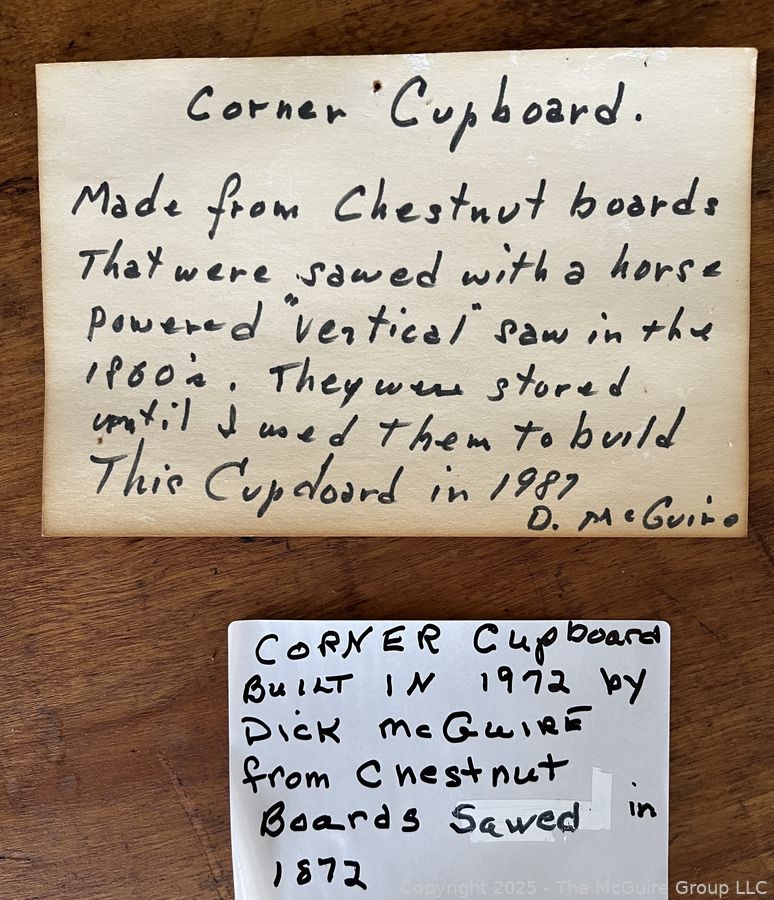 Corner Cupboard.
Made from Chestnut boards
That were sawed with a horse
Powered "Vertical" saw in the
1860's. They were stored
until I used them to build
This Cupdoard in 1987
D. McGuire
CORNER Cupboard
BUILT IN 1972 by
DICK McGUIRE
from Chestnut
Boards Sawed in
1872
Copyright 2025 - The McGuire Group LLC